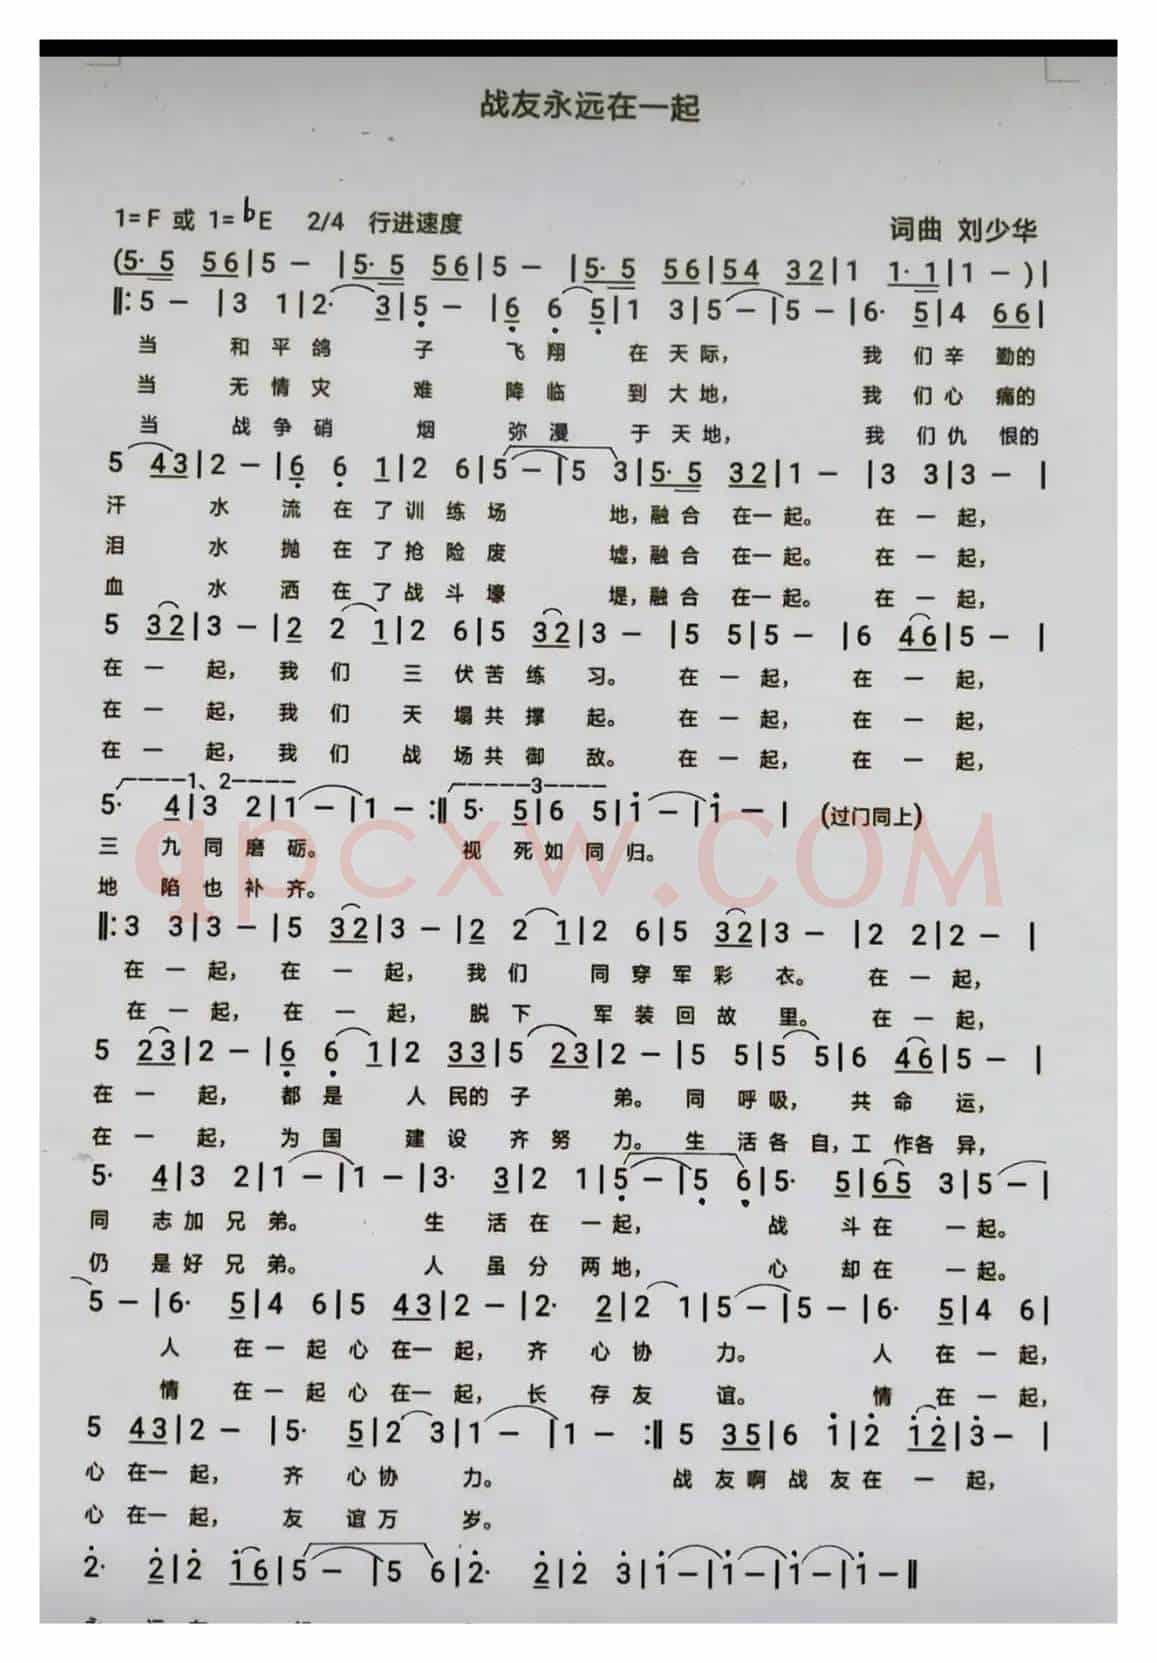 战友永远在一起
1=F 或 1=♭E 2/4 行进速度 词曲 刘少华
(5· 5 56|5 — |5· 5 56|5 — |5· 5 56|54 32|1 1· 1|1 — )|
‖: 5 — |3 1|2· 3|5 — |6 6 5|1 3|5 — |5 — |6· 5|4 66|
当 和平鸽 子 飞翔 在天际, 我 们辛 勤的
当 无情灾 难 降临 到大地, 我 们心 痛的
当 战争硝 烟 弥漫 于天地, 我 们仇 恨的
5 43|2 — |6 6 1|2 6|5 — |5 3|5· 5 32|1 — |3 3|3 — |
汗 水 流 在 了训 练 场 地,融合 在一起。 在 一 起,
泪 水 抛 在 了抢 险 废 墟,融合 在一起。 在 一 起,
血 水 洒 在 了战 斗 壕 堤,融合 在一起。 在 一 起,
5 32|3 — |2 2 1|2 6|5 32|3 — |5 5|5 — |6 46|5 — |
在 一 起, 我 们 三 伏苦 练 习。 在 一 起, 在 一 起,
在 一 起, 我 们 天 塌共 撑 起。 在 一 起, 在 一 起,
在 一 起, 我 们 战 场共 御 敌。 在 一 起, 在 一 起,
1、2 3
5· 4|3 2|1 — |1 — :‖ 5· 5|6 5|i — |i — | (过门同上)
三 九同磨砺。 视 死如同归。
地 陷也补齐。
qpcxw.COM
‖: 3 3|3 — |5 32|3 — |2 2 1|2 6|5 32|3 — |2 2|2 — |
在 一 起, 在 一 起, 我 们 同 穿 军 彩 衣。 在 一 起,
在 一 起, 在 一 起, 脱 下 军 装 回 故 里。 在 一 起,
5 23|2 — |6 6 1|2 33|5 23|2 — |5 5|5 5|6 46|5 — |
在 一 起, 都 是 人 民的 子 弟。 同 呼吸, 共 命 运,
在 一 起, 为 国 建 设 齐 努 力。 生 活各 自,工 作各 异,
5· 4|3 2|1 — |1 — |3· 3|2 1|5 — |5 6|5· 5|65 3|5 — |
同 志加 兄 弟。 生 活在 一起, 战 斗在 一起。
仍 是好 兄 弟。 人 虽分 两地, 心 却在 一起。
5 — |6· 5|4 6|5 43|2 — |2· 2|2 1|5 — |5 — |6· 5|4 6|
人 在一 起 心 在一 起, 齐 心协 力。 人 在 一 起,
情 在一 起 心 在一 起, 长 存友 谊。 情 在 一 起,
5 43|2 — |5· 5|2 3|1 — |1 — :‖ 5 35|6 i|2̇ i2̇|3̇ — |
心 在一 起, 齐 心协 力。 战 友啊 战 友在 一 起,
心 在一 起, 友 谊万 岁。
2̇· 2̇|2̇ i6|5 — |5 6|2̇· 2̇|2̇ 3̇|i — |i — |i — |i — ‖